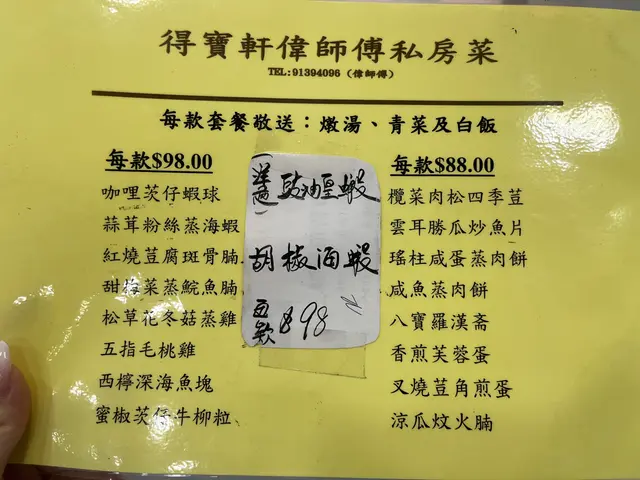 得寶軒偉師傅私房菜
TEL:91394096 (偉師傅)
每款套餐敬送：燉湯、青菜及白飯
每款$98.00
咖哩茨仔蝦球
蒜茸粉絲蒸海蝦
紅燒荳腐斑骨腩
甜梅菜蒸鯇魚腩
松草花冬菇蒸雞
五指毛桃雞
西檸深海魚塊
蜜椒茨仔牛柳粒
豉油皇蝦
胡椒海蝦
每款$98
每款$88.00
欖菜肉松四季荳
雲耳勝瓜炒魚片
瑤柱咸蛋蒸肉餅
咸魚蒸肉餅
八寶羅漢斋
香煎芙蓉蛋
叉燒荳角煎蛋
涼瓜炆火腩